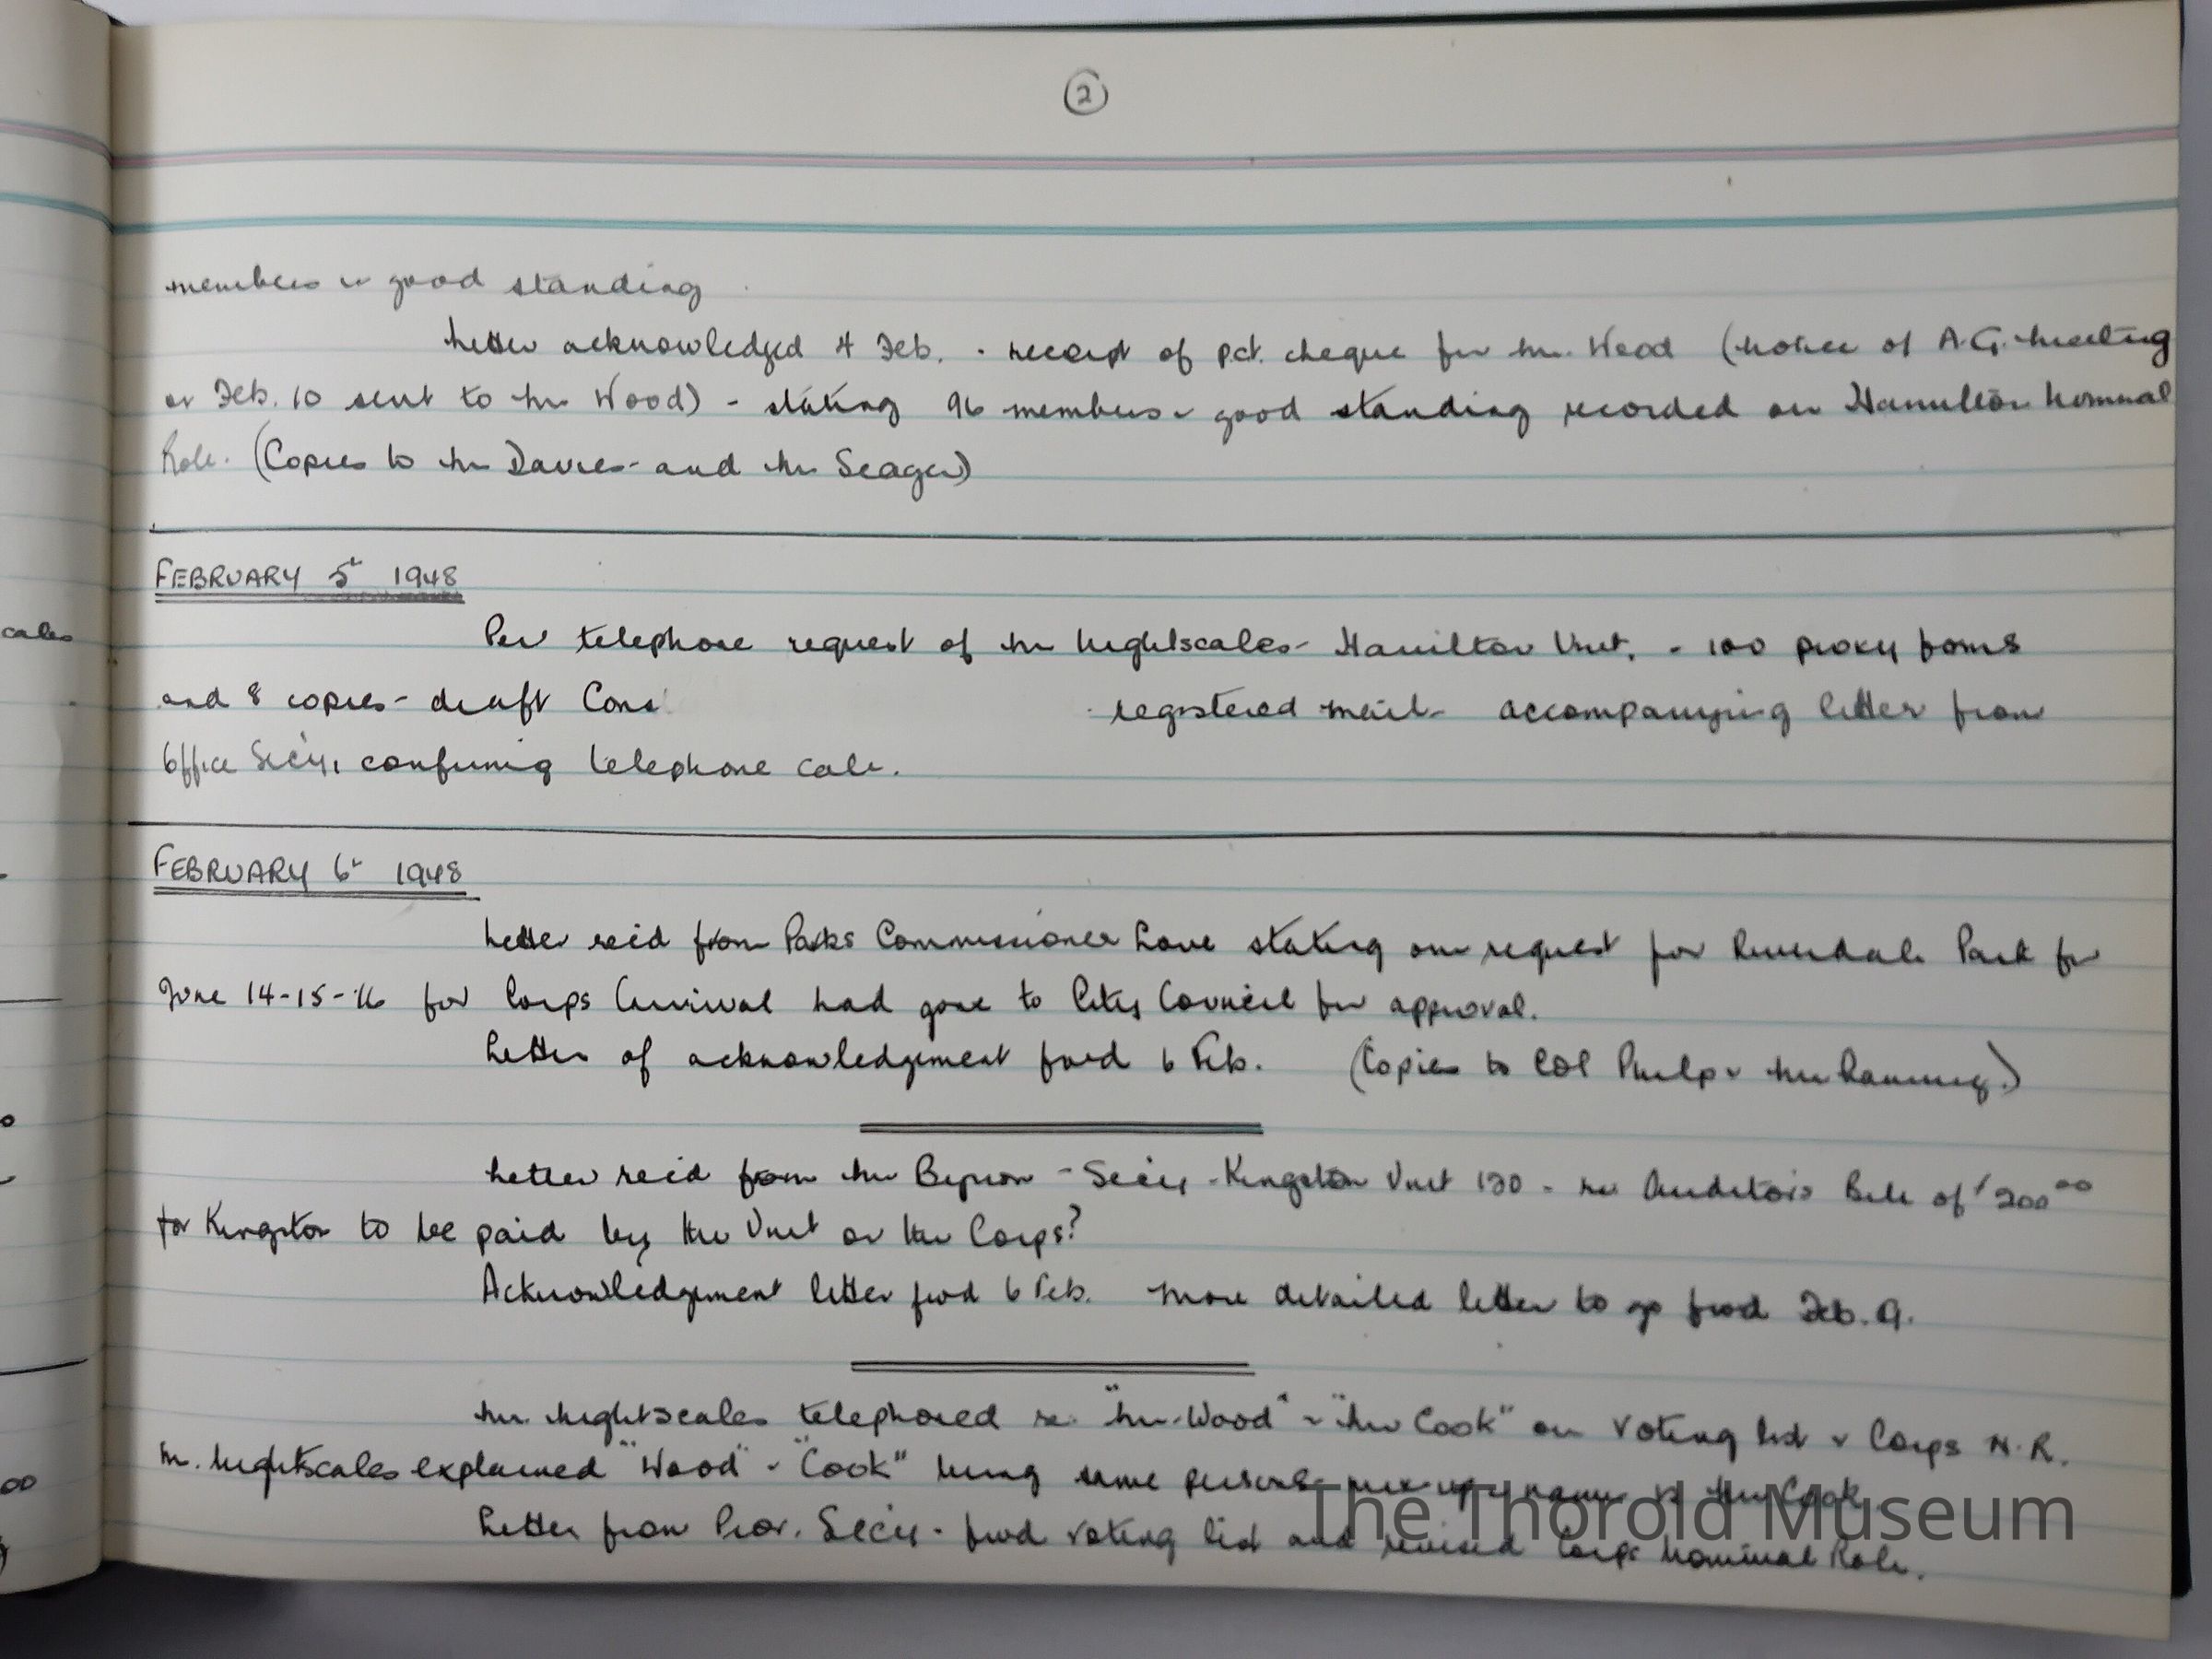 2
members in good standing
Letter acknowledged 4 Feb. - receipt of pct. cheque for Mr. Wood (Notice of A.G. Meeting
on Feb. 10 sent to Mr Wood) - stating 96 members in good standing recorded on Hamilton Nominal
Role. (Copies to Mr Davies - and Mr Seager)
FEBRUARY 5th 1948
Per telephone request of Mr Lightscales - Hamilton Unit. - 100 proxy forms
and 8 copies - draft registered mail - accompanying letter from
Office Sec'y, confirming telephone call.
FEBRUARY 6th 1948
Letter rec'd from Parks Commissioner Love stating our request for Riverdale Park for
June 14-15-16 for Corps Carnival had gone to City Council for approval.
Letter of acknowledgement fwd 6 Feb. (Copies to Col Phelps &
Letter rec'd from Mr - Sec'y - Kingston Unit 130 - re Auditors Bill of $200.00
for Kingston to be paid by the Unit or the Corps?
Acknowledgement letter fwd 6 Feb. More detailed letter to go fwd Feb. 9.
Mr. Lightscales telephoned re. "Mr. Wood" & "Mr Cook" on Voting list & Corps N.R.
Mr. Lightscales explained "Wood" & "Cook" being same persons mix-up name is Mr Cook.
Letter from Prov. Sec'y - fwd voting list and revised Corps Nominal Role.
cales
The Thorold Museum